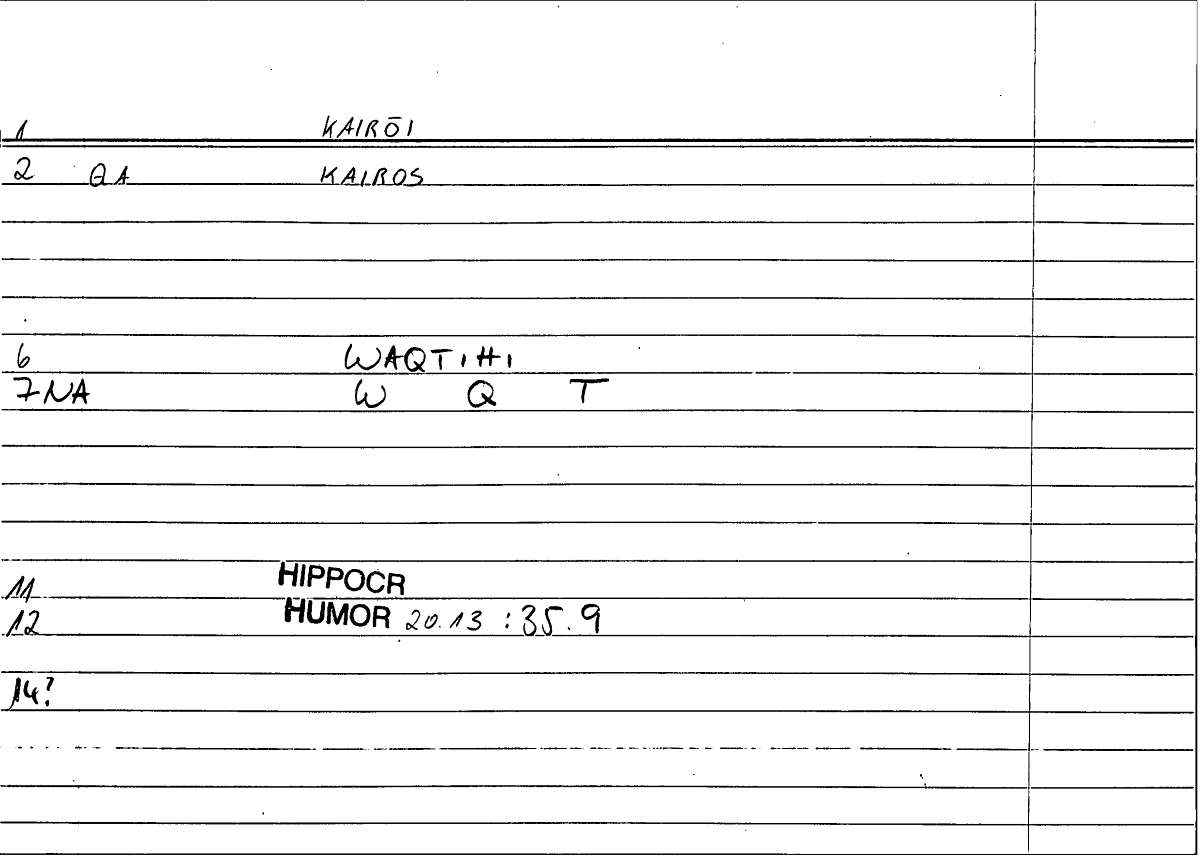 1 KAIRŌI
2 QA KAIROS
6 WAQTIHI
7 NA W Q T
11 HIPPOCR
12 HUMOR 20.13 :35.9
14?